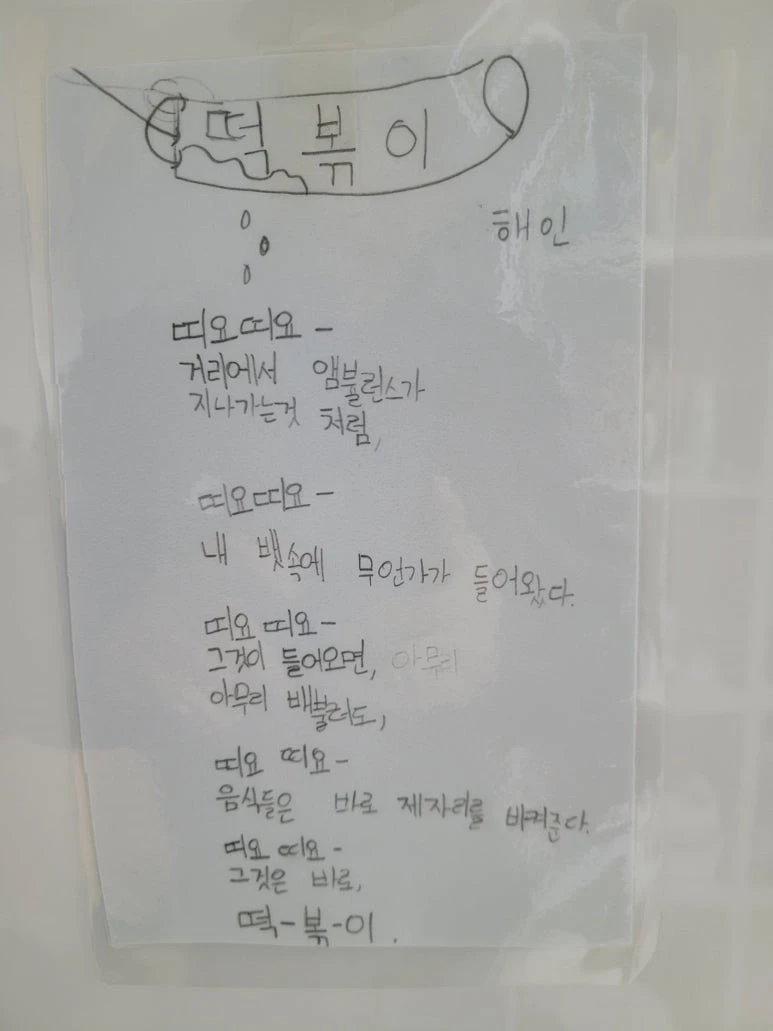 떡볶이
해인
띠요띠요 -
거리에서 앰뷸런스가
지나가는것 처럼,
띠요띠요 -
내 뱃속에 무언가가 들어왔다.
띠요 띠요 -
그것이 들어오면, 아무리
아무리 배불러도,
띠요 띠요 -
음식들은 바로 제자리를 바켜준다.
띠요 띠요 -
그것은 바로,
떡-볶-이.